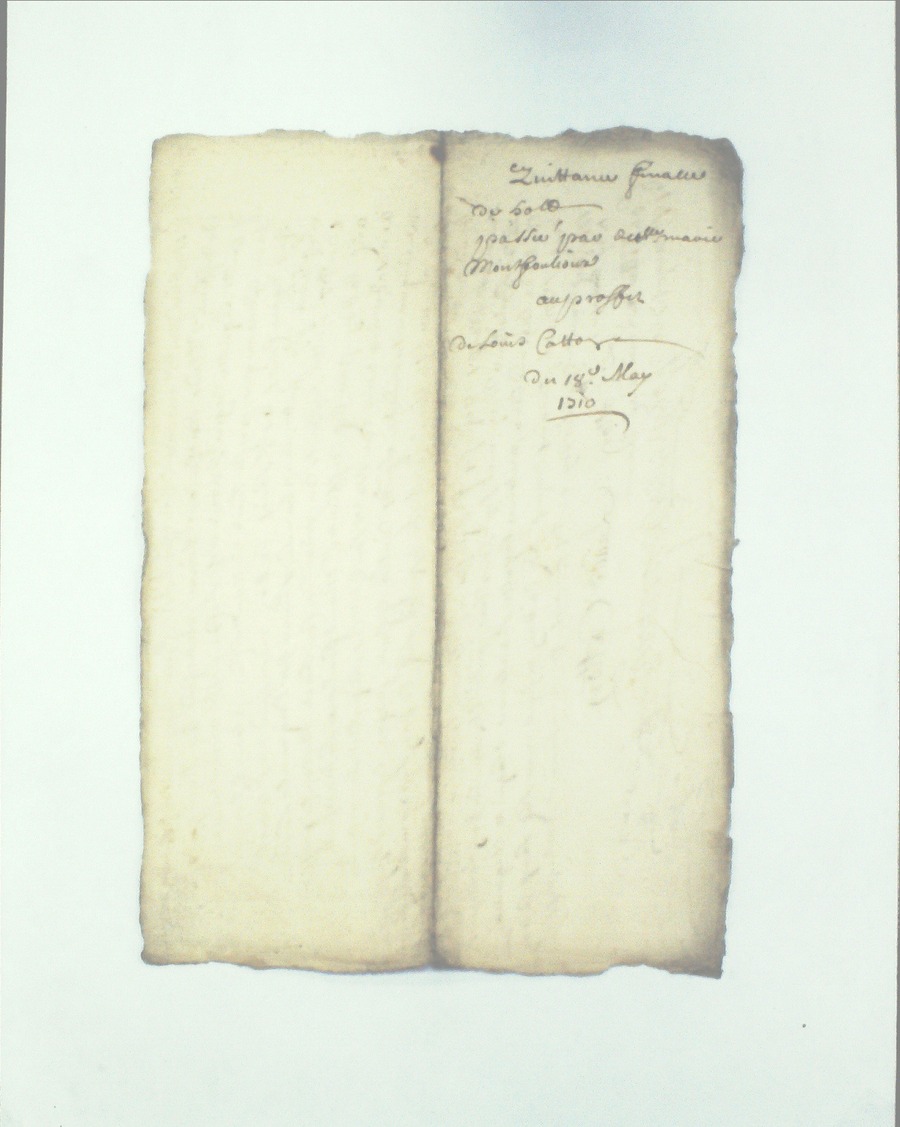 Quittance finalle
de sold
passé par delle marie
Montfoulioux
au proffit
de Louis Cattoy
du 18e May
1710